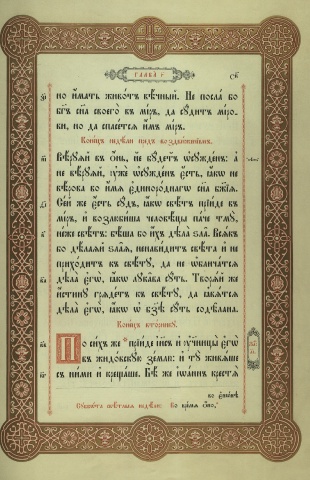 ГЛАВА г҃
но и҆́мать живо́тъ вѣ́чный. Не посла́ бо
бг҃ъ сн҃а своего̀ въ мі́ръ, да сꙋ́дитъ мі́ро-
ви, но да спасе́тсѧ и҆́мъ мі́ръ.
Коне́цъ недѣ́ли пред̾ воздви́женїемъ.
Вѣ́рꙋѧй въ ѻ҆́нь, не бꙋ́детъ ѡ҆сꙋжде́нъ: а҆
не вѣ́рꙋѧй, ᲂу҆жѐ ѡ҆сꙋжде́нъ є҆́сть, ꙗ҆́кѡ не
вѣ́рова во и҆́мѧ є҆диноро́днагѡ сн҃а бж҃їѧ.
Се́й же є҆́сть сꙋ́дъ, ꙗ҆́кѡ свѣ́тъ прїи́де въ
мі́ръ, и҆ возлюби́ша человѣ́цы па́че тмꙋ̀
не́же свѣ́тъ: бѣ́ша бо и҆́хъ дѣла̀ ѕла̀. Всѧ́къ
бо дѣ́лаѧй ѕла̑ѧ, ненави́дитъ свѣ́та и҆ не
прихо́дитъ къ свѣ́тꙋ, да не ѡ҆блича́тсѧ
дѣла̀ є҆гѡ̀, ꙗ҆́кѡ лꙋка̑ва сꙋ́ть. Творѧ́й же
и҆́стинꙋ грѧде́тъ къ свѣ́тꙋ, да ꙗ҆вѧ́тсѧ
дѣла̀ є҆гѡ̀, ꙗ҆́кѡ ѡ҆ бз҃ѣ сꙋ́ть содѣ̑лана.
Коне́цъ вто́рникꙋ
По си́хъ же прїи́де і҆и҃съ и҆ ᲂу҆чн҃цы̀ є҆гѡ̀
въ жидо́вскꙋю зе́млю: и҆ тꙋ̀ живѧ́ше
съ ни́ми и҆ креща́ше. Бѣ́ же і҆ѡа́ннъ крестѧ̀
во є҆нѡ́нѣ
Сꙋббѡ́та свѣ́тлыѧ недѣ́ли: Во вре́мѧ ѻ҆́но,